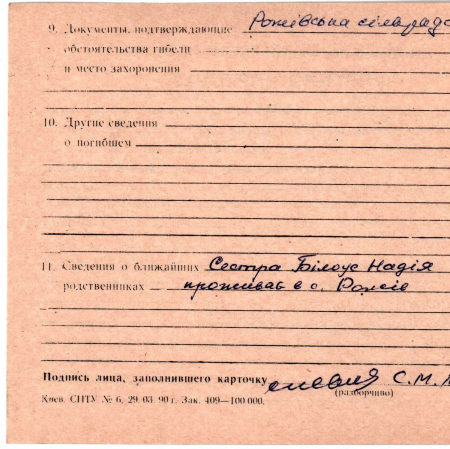 9. Документы, подтверждающие Рожівська сільрада
обстоятельства гибели
и место захоронения
10. Другие сведения
о погибшем
11. Сведения о ближайших Сестра Білоус Надія
родственниках проживає в с. Рожів
Подпись лица, заполнившего карточку С. М.
(разборчиво)
Киев. СПТУ № 6, 29. 03. 90 г. Зак. 409—100 000.